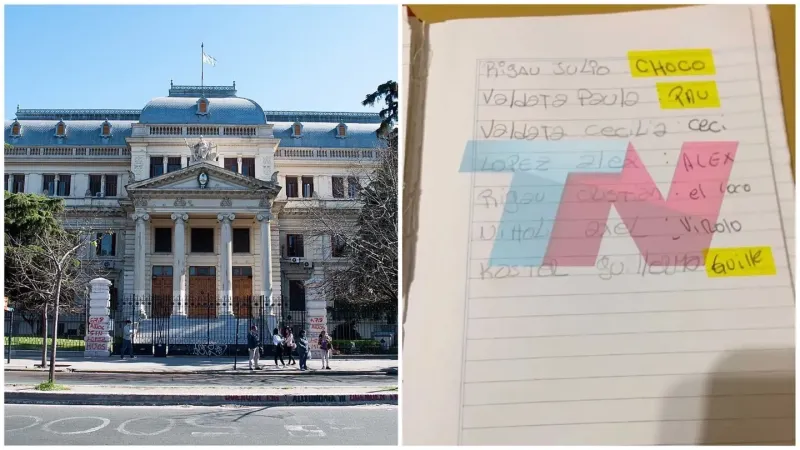 Rigau Julio CHOCO
Valdata Paula : PAU
Valdata Cecilia Ceci
Lopez alex : ALEX
Rigau cristian : el loco
axel : Virolo
Kostel guillermo GUille
TN